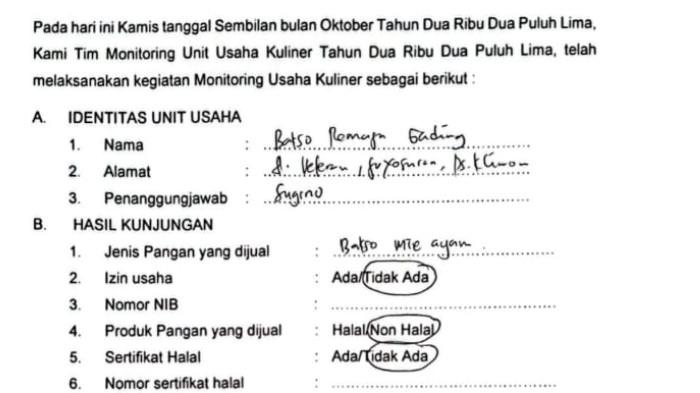 Pada hari ini Kamis tanggal Sembilan bulan Oktober Tahun Dua Ribu Dua Puluh Lima,
Kami Tim Monitoring Unit Usaha Kuliner Tahun Dua Ribu Dua Puluh Lima, telah
melaksanakan kegiatan Monitoring Usaha Kuliner sebagai berikut :
A. IDENTITAS UNIT USAHA
1. Nama : Bakso Remaja Gading
2. Alamat : Jl. Veteran,
3. Penanggungjawab : Sugino
B. HASIL KUNJUNGAN
1. Jenis Pangan yang dijual : Bakso mie ayam
2. Izin usaha : Ada/Tidak Ada
3. Nomor NIB :
4. Produk Pangan yang dijual : Halal/Non Halal
5. Sertifikat Halal : Ada/Tidak Ada
6. Nomor sertifikat halal :